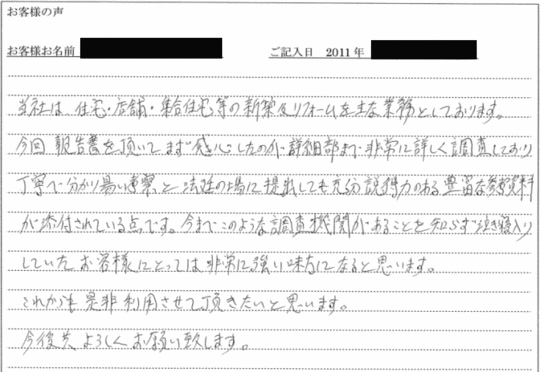 お客様の声
お客様お名前 ご記入日 2011年
当社は、住宅・店舗・集合住宅等の新築及リフォームを主な業務としております。
今回 報告書を頂いてまず感心したのが詳細部まで非常に詳しく調査しており
丁寧で分かり易い と 法廷の場に提出しても充分説得力のある豊富な参考資料
が添付されている点です。今までこのような調査機関があることを知らず泣き寝入り
していたお客様にとっては非常に強い味方になると思います。
これからも是非利用させて頂きたいと思います。
今後共よろしくお願い致します。